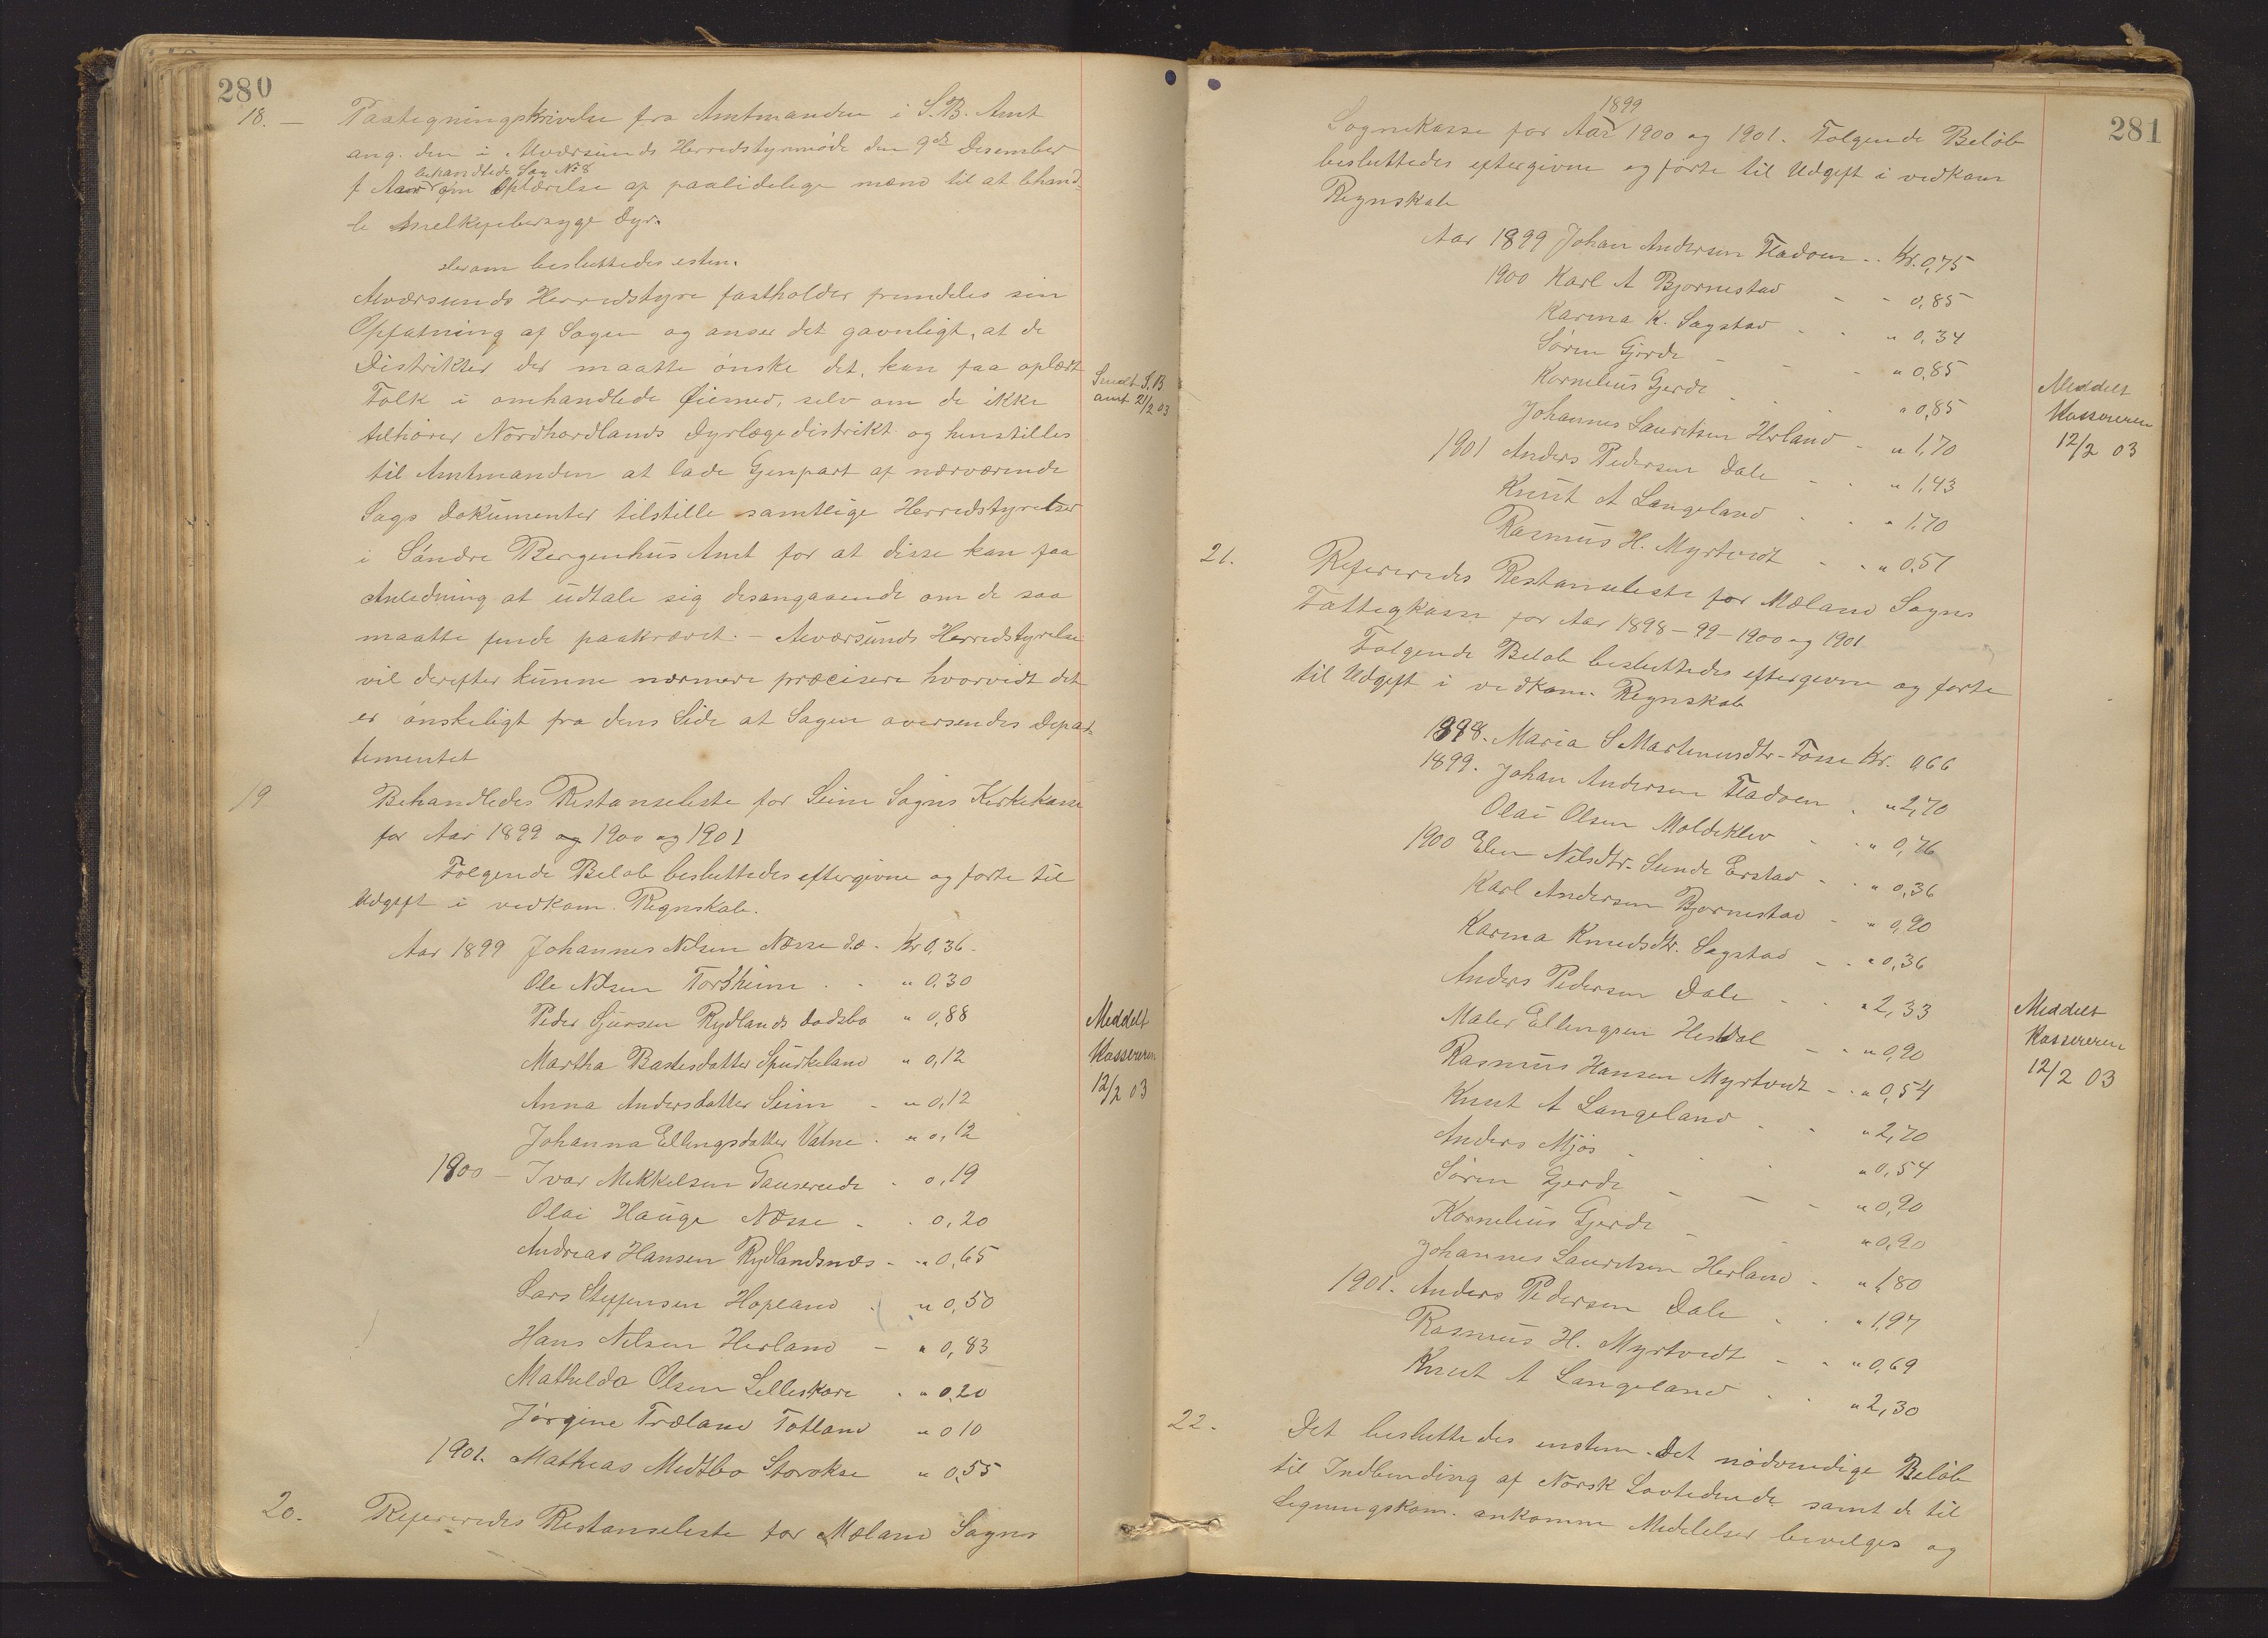 280
18. — Paategningskrivelse fra Amtmanden i S.B. Amt
ang. den i Alværsunds Herredstyremøde den 9de Desember
behandlede Sag No 8
f Aar om Oplærelse af paalidelige mænd til at behand-
le Melkefebersyge Dyr.
Derom besluttedes esten.
Alværsunds Herredstyre fastholder fremdeles sin
Opfatning af Sagen og anser det gavnligt, at de
Distrikter der maatte ønske det, kan faa oplært
Folk i omhandlede Øiemed, selv om de ikke
tilhører Nordhordlands Dyrlægedistrikt og henstilles
til Amtmanden at lade Gjenpart af nærværende
Sags Dokumenter tilstille samtlige Herredstyrelser
i Søndre Bergenhus Amt for at disse kan faa
Anledning at udtale sig desangaaende om de saa
maatte finde paakrævet. — Alværsunds Herredstyrelse
vil derefter kunne nærmere præcisere hvorvidt det
er ønskeligt fra dens Side at Sagen oversendes Depar-
tementet
Sendt S.B
amt 21/2 03
19 Behandledes Restanseliste for Seim Sogns Kirkekasse
for Aar 1899 og 1900 og 1901
Følgende Beløb besluttedes eftergivne og førte til
Udgift i vedkom. Regnskab.
Aar 1899 Johannes Nilsen Næsse d.o. Kr 0,36.
Ole Nilsen Torsheim . . " 0,30
Peder Sjursen Rydlands dødsbo " 0,88
Martha Bastesdatter Spurkeland " 0,12
Anna Andersdatter Seim - " 0,12
Johanna Ellingsdatter Vatne . " 0,12
1900 — Ivar Mikkelsen Gausereide . 0,19
Olai Hauge Næsse . . 0,20
Andreas Hansen Rydlandsnæs - " 0,65
Lars Steffensen Hopland . " 0,50
Hans Nilsen Herland - " 0,83
Mathilda Olsen Lilleskare . " 0,20
Jørgine Træland Totland " 0 10
1901. Mathias Midtbø Storokse " 0,55
Meddelt
Kassereren
12/2 03
20. Refereredes Restanseliste for Mæland Sogns
281
1899
Sognekasse for Aar 1900 og 1901. Følgende Beløb
besluttedes eftergivne og førte til Udgift i vedkom
Regnskab
Aar 1899 Johan Andersen Fladoen .. Kr. 0,75
1900 Karl A Bjørnestad - - 0,85
Karina K. Sagstad . . " 0,34
Søren Gjerde - - " 0,85
Kornelius Gjerde . . " 0,85
Johannes Lauritsen Herland - " 1,70
1901 Anders Pedersen Dale - . " 1,43
Knut A Langeland . . " 1.70
Rasmus H. Myrtvedt - . " 0,51
Meddelt
Kassereren
12/2 03
21. Refereredes Restanseliste for Mæland Sogns
Fattigkasse for Aar 1898 - 99 - 1900 og 1901
Følgende Beløb besluttedes eftergivne og førte
til Udgift i vedkom. Regnskab
1898. Maria S Martinusdtr. Fosse Kr. 0,66
1899. Johan Andersen Fladoen . " 2,70
Olai Olsen Moldeklev . " 0,76
1900 Elen Nilsdtr. Sunde Erstad - . " 0,36
Karl Andersen Bjørnestad - " 0,90
Karina Knudsdtr. Sagstad - . " 0,36
Anders Pedersen Dale - . " 2,33
Maler Ellingsen Hesdal - " 0,90
Rasmus Hansen Myrtvedt - . " 0,54
Knut A Langeland . . " 2,70
Anders Mjøs . . . " 0,54
Søren Gjerde - - - " 0,90
Kornelius Gjerde - - " 0,90
Johannes Lauritsen Herland . " 1,80
1901. Anders Pedersen Dale . . " 1,97
Rasmus H. Myrtvedt - . " 0,69
Knut A Langeland . . " 2,30
Meddelt
Kassereren
12/2 03
22. Det besluttedes enstem. Det nødvendige Beløb
til Indbinding af Norsk Lovtidende samt de til
Ligningskom. ankomne Medelelser bevilges og